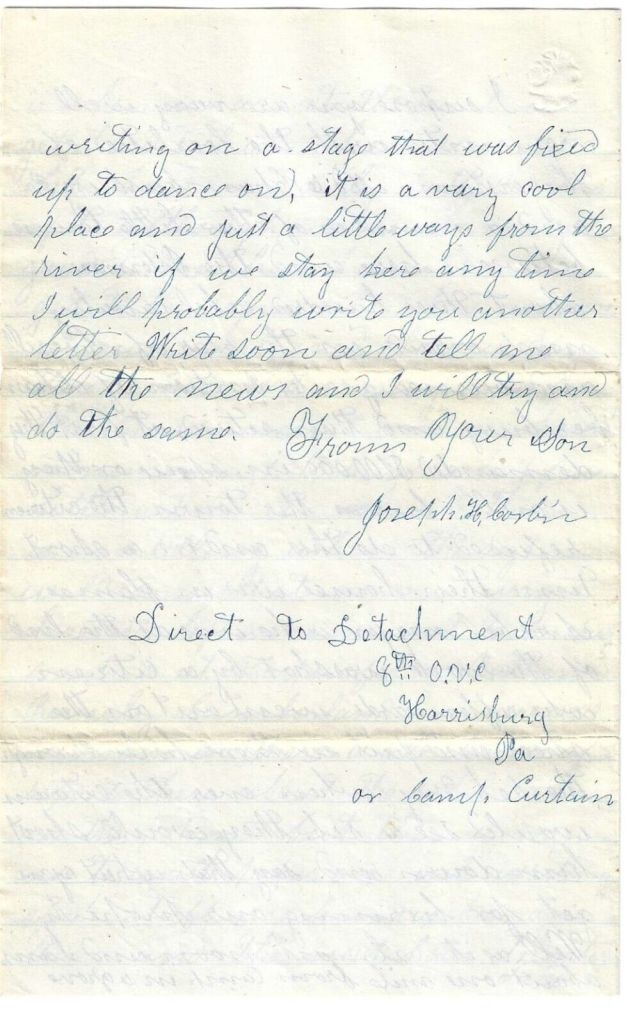 writing on a stage that was fixed
up to dance on, it is a vary cool
place and just a little ways from the
river if we stay here any time
I will probably write you another
letter Write soon and tell me
all the news and I will try and
do the same. From Your Son
Joseph. H. Corbin
Direct to Detachment
8th O.V.C
Harrisburg
Pa
or Camp. Curtain